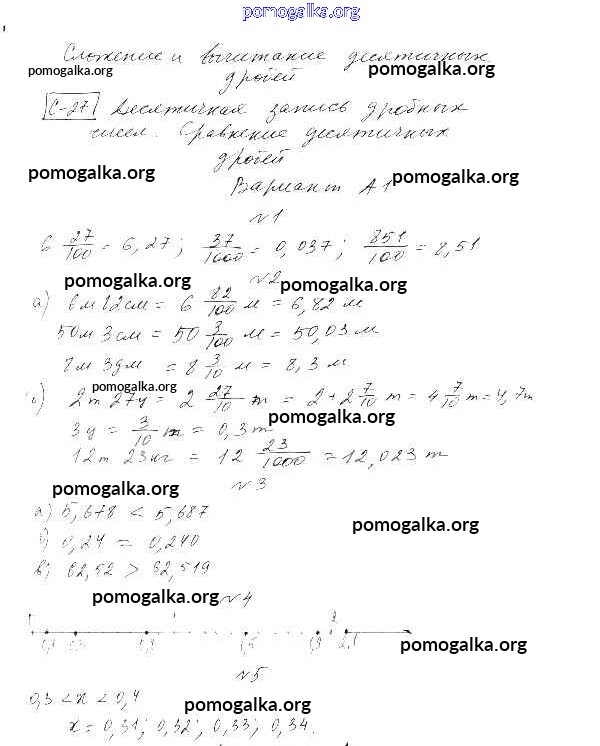 pomogalka.org
Сложение и вычитание десятичных
pomogalka.org pomogalka.org
дробей
С-27 Десятичная запись дробных
чисел. Сравнение десятичных
дробей
pomogalka.org
Вариант А1
pomogalka.org
№1
6 27/100 = 6,27; 37/1000 = 0,037; 851/100 = 8,51
pomogalka.org №2 pomogalka.org
а) 6м 82см = 6 82/100 м = 6,82 м
50м 3см = 50 3/100 м = 50,03 м
8м 3дм = 8 3/10 м = 8,3 м
pomogalka.org
б) 2т 27ц = 2 27/10 т = 2+2 7/10 т = 4 7/10 т = 4,7т
pomogalka.org
3ц = 3/10 т = 0,3 т
12т 23кг = 12 23/1000 = 12,023 т
pomogalka.org №3
а) 5,678 < 5,687
pomogalka.org
б) 0,24 = 0,240
в) 62,52 > 62,519
pomogalka.org №4
pomogalka.org
№5
0,3 < x < 0,4
pomogalka.org
x = 0,31; 0,32; 0,33; 0,34.